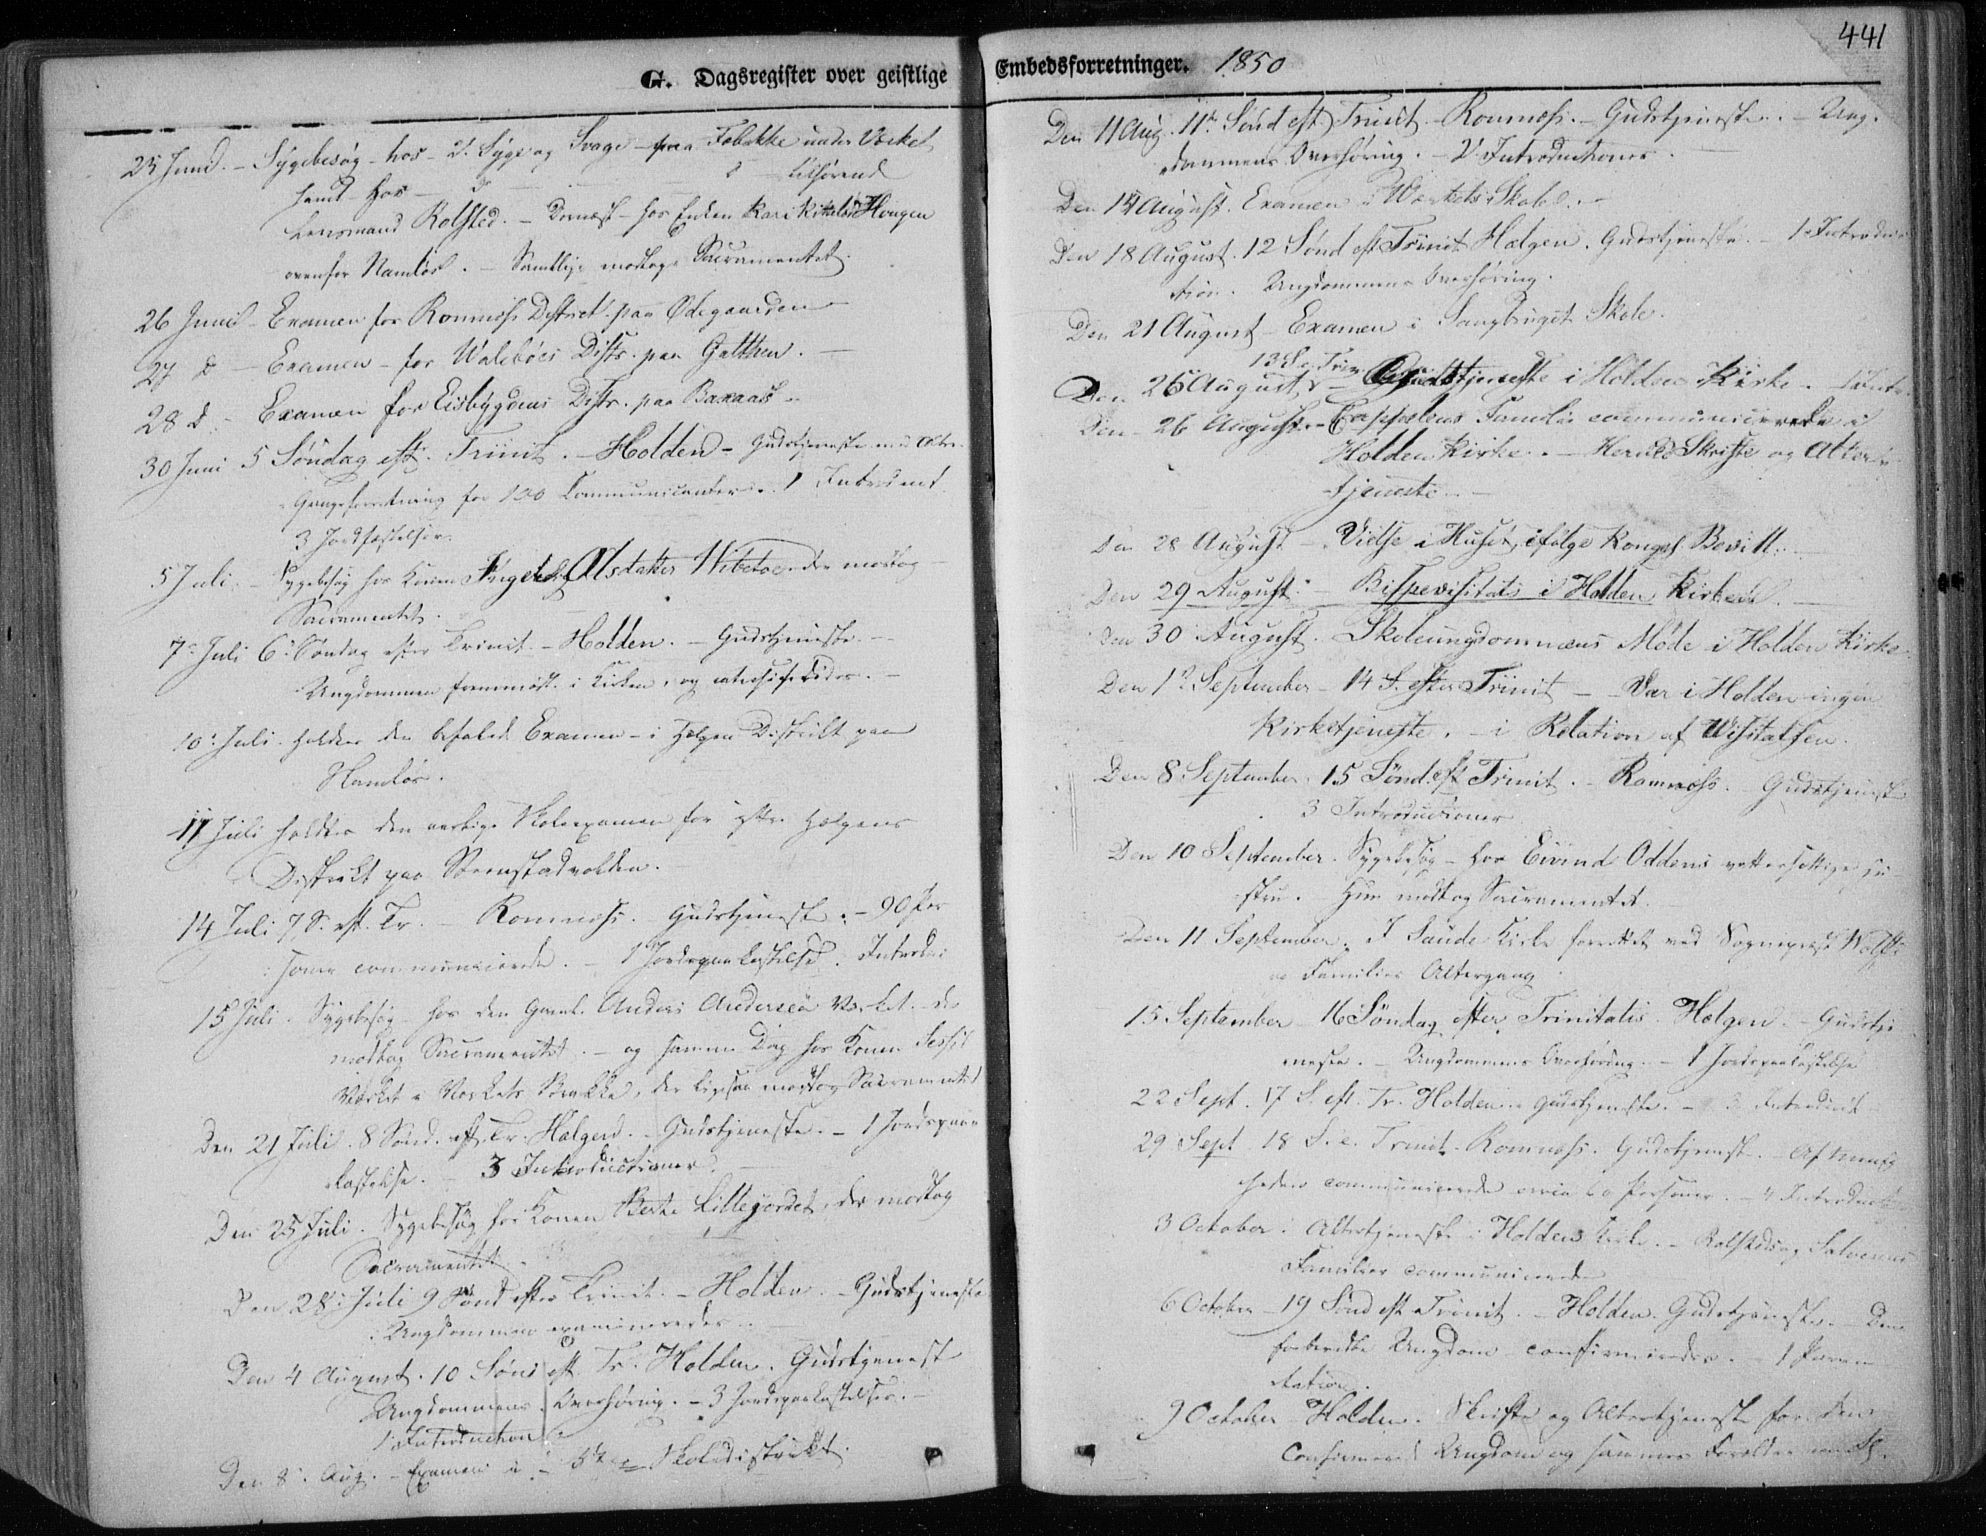 G. Dagsregister over geistlige
25 Juni. - Sygebesøg - hos - 2. Syge og Svage - paa Fabrikke under Værket
samt hos - tilhørend
Lensmand Rolsted. - Dernæst - hos Enken Kari Haugen
ovenfor Namløs. - Samtlige modtog Sacramentet.
26 Juni - Examen for Romnæs District paa Ødegaarden
27 D - Examen - for Valebøes Distr. paa Gatthen. -
28 D. - Examen for Eisbygdens Distr. paa Baxaas -
30 Juni 5 Søndag eft. Trinit. - Holden - Gudstjeneste med Alter-
Gangsforretning for 100 Communicanter. 1 Introduct.
3 Jordfæstelser.
5 Juli. - Sygebesøg hos Konen Ingeborg Alsdaker Wibetoe der modtog
Sacramentet.
7de Juli 6. Søndag efter Trinit. - Holden. - Gudstjeneste -
Ungdommen fremmødt i Kirken, og catechiseredes. -
10. Juli. Holdtes den befalede Examen - i Hælgen Distrikt paa
Namløs.
11 Juli holdtes den aarlige Skoleexamen for ytre Hælgens
Distrikt paa Stemstadvolden.
14 Juli 7 S. eft. Tr. - Romnæs. - Gudstjeneste. - 90 Per
soner communicerede. - 1 Jordpaakastelse. Introduc
15 Juli. Sygebesøg - hos den Gamle Anders Andersen Værket. der
modtog Sacramentet. - og samme Dag hos Konen
Værket i Værkets Brakke, der ligesaa modtog Sacramentet
Den 21 Juli. 8 Sønd. eft. Tr. Hælgen. - Gudstjeneste. - 1 Jordspaa
kastelse. - 3 Introductioner.
Den 25 Juli. Sygebesøg hos Konen Berte Lillegordet, der modtog
Sacramentet.
Den 28. Juli 9 Sønd efter Trinit. - Holden. - Gudstjeneste
Ungdommen examineredes. -
Den 4 August. 10 Sønd eft Tr. Holden. Gudstjenest
Ungdommens Overhøring. - 3 Jordspaakastelser. -
1 Introduction
Den 8. Aug. - Examen i - 5te Skoledistrikt.
Embedsforretninger. 1850
441
Den 11 Aug. 11te Sønd eft Trinit - Romnæs. - Gudstjeneste. - Ung-
dommens Overhøring. - 2 Introductioner.
Den 14 August. Examen i Værkets Skole. -
Den 18 August. 12 Sønd eft Trinit Hælgen. Gudstjeneste. - 1 Introduc
tion. Ungdommens Overhøring.
Den 21 August - Examen i Saugbrugets Skole.
13 S. e. Trin
Den 25 August - Gudstjeneste i Holdens Kirke.
Den 26 August. - Cappelens Familie communicerede i
Holden Kirke. - Skrifte og Alter
tjeneste. -
Den 28 August - Vielse i Huset, ifølge Kongel Bevill. -
Den 29 August. - Bispevisitats i Holden Kirke. -
Den 30 August. Skoleungdommens Møde i Holden Kirke
Den 1. September - 14 S. efter Trinit - Var i Holden ingen
Kirketjeneste. - i Relation af Visitatsen.
Den 8 September. 15 Sønd. eft Trinit. - Romnæs. - Gudstjeneste
3 Introductioner
Den 10 September. Sygebesøg - hos Eivind Oddens Hu
stru. Hun modtog Sacramentet.
Den 11 September. I Saude Kirke forrettet ved Sogneprest Wolffs
Families Altergang.
15 September - 16 Søndag efter Trinitatis Hælgen. - Gudstje
neste. - Ungdommens Overhøring. - 1 Jordspaakastelse
22 Sept. 17 S. eft. Tr. Holden. Gudstjeneste. - 3 Introduct
29 Sept. 18 S. e. Trinit. Romnæs. Gudstjenest. - Af Menig
heden communicerede circa 60 Personer. - 4 Introduct
3 October. Altertjeneste i Holdens Kirke. - Rolsteds og
Familier communicerede
6 October - 19 Sønd eft Trinit. - Holden. Gudstjeneste. - Den
forberedte Ungdom confirmeredes. - 1
tation.
9 October - Holden. Skrifte og Altertjeneste for den
Confirmered Ungdom og sammes Forældre